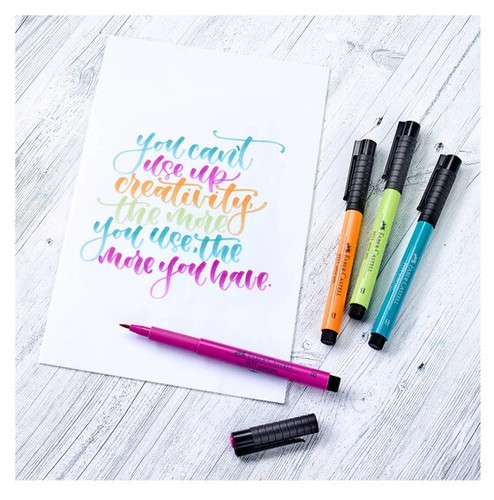 you can't
use up
creativity
the more
you use, the
more you have.
FABER-CASTELL
B
FABER-CASTELL
B
FABER-CASTELL
B
FABER-CASTELL
B